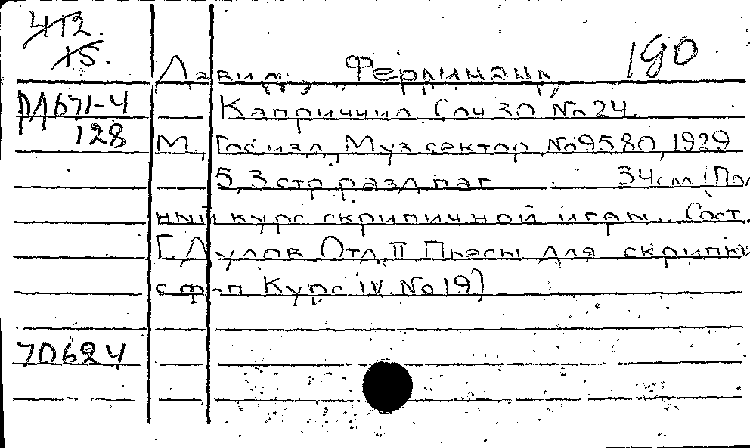 412.
15.
Давид, Фердинанд 190
М671-4
Каприччио Соч 30 № 24.
128
М., Госизд, Муз сектор, № 9580, 1929
5, 3 стр. разд. паг. 34 см (Пол
ный курс скрипичной игры. Сост.
Г. Дулов Отд. II Пьесы для скрипки
с ф-п Курс IV № 19)
70624